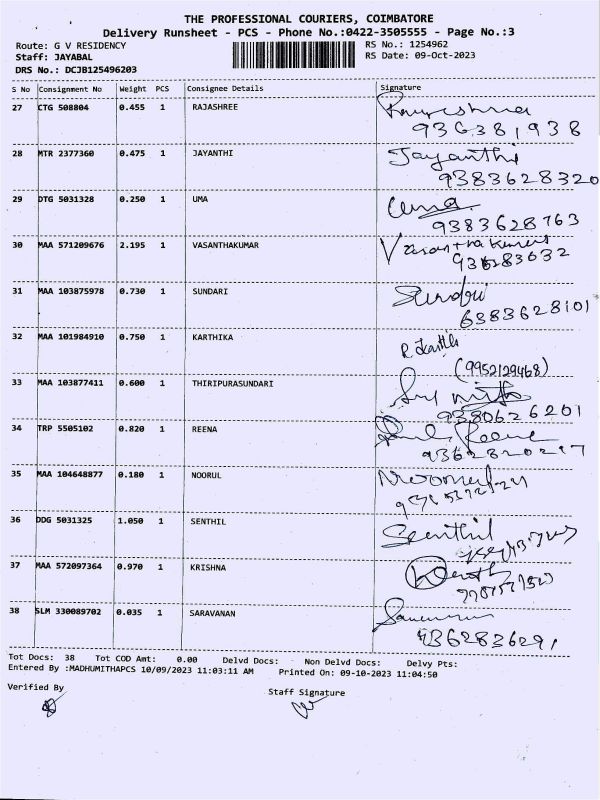 THE PROFESSIONAL COURIERS, COIMBATORE
Delivery Runsheet - PCS - Phone No.:0422-3505555 - Page No.:3
Route: G V RESIDENCY
RS No.: 1254962
Staff: JAYABAL
RS Date: 09-Oct-2023
DRS No.: DCJB125496203
S No Consignment No Weight PCS Consignee Details Signature
27 CTG 508804 0.455 1 RAJASHREE
936381938
28 MTR 2377360 0.475 1 JAYANTHI Jayanthi
9383628320
29 DTG 5031328 0.250 1 UMA Uma
9383628763
30 MAA 571209676 2.195 1 VASANTHAKUMAR Vasanthakumar
31 MAA 103875978 0.730 1 SUNDARI Sundari
6383628101
32 MAA 101984910 0.750 1 KARTHIKA
(9952129468)
33 MAA 103877411 0.600 1 THIRIPURASUNDARI
9380626201
34 TRP 5505102 0.820 1 REENA Reena
35 MAA 104648877 0.180 1 NOORUL
36 DDG 5031325 1.050 1 SENTHIL Senthil
37 MAA 572097364 0.970 1 KRISHNA
38 SLM 330089702 0.035 1 SARAVANAN
9362836291
Tot Docs: 38 Tot COD Amt: 0.00 Delvd Docs: Non Delvd Docs: Delvy Pts:
Entered By :MADHUMITHAPCS 10/09/2023 11:03:11 AM Printed On: 09-10-2023 11:04:50
Verified By
Staff Signature